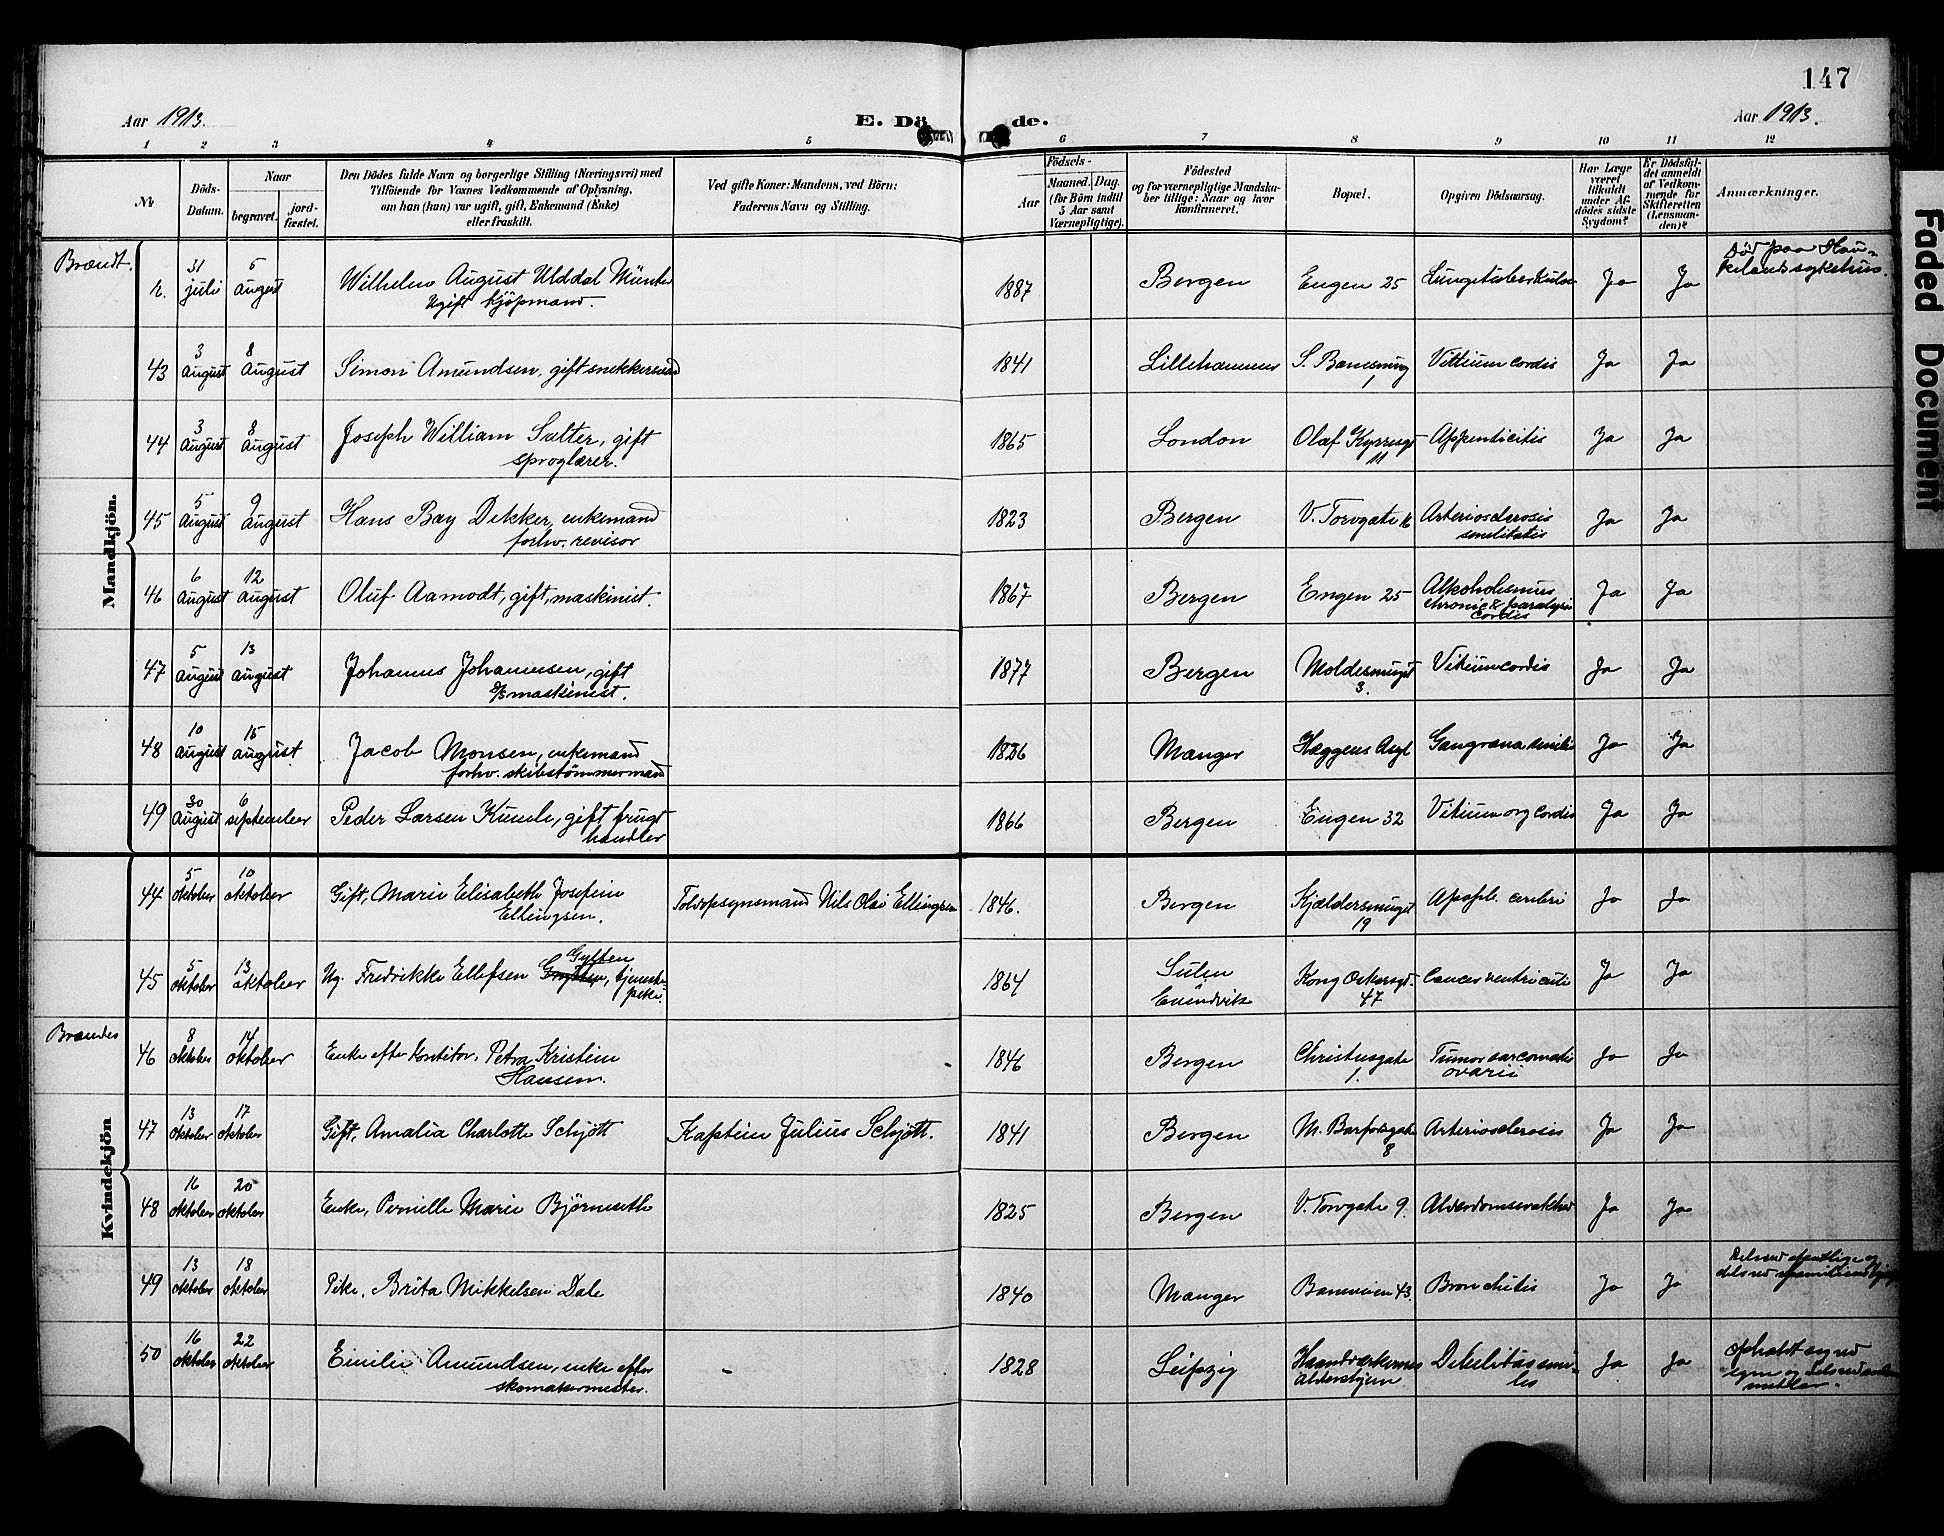 147
Aar 1913.
E. Dö de.
Aar 1913.
1 2 3 4 5 6 7 8 9 10 11 12
№
Döds-
Datum.
Naar
begravet.
jord-
fæstet.
Den Dödes fulde Navn og borgerlige Stilling (Næringsvei) med
Tilföiende for Voxnes Vedkommende af Oplysning,
om han (hun) var ugift, gift, Enkemand (Enke)
eller fraskilt.
Ved gifte Koner: Mandens, ved Börn:
Faderens Navn og Stilling.
Födsels-
Aar
Maaned. Dag.
(for Börn indtil
5 Aar samt
Værnepligtige).
Födested
og for værnepligtige Mandska-
ber tillige: Naar og hvor
konfirmeret.
Bopæl.
Opgiven Dödsaarsag.
Har Læge
været
tilkaldt
under Af-
dödes sidste
Sygdom?
Er Dödsfal-
det anmeldt
af Vedkom-
mende for
Skifteretten
(Lensman-
den)?
Anmærkninger.
Mandkjön.
Brændt.
31 juli 5 august Wilhelm August Ulddal Münster
ugift kjøpmand.
1887 Bergen Engen 25 Lungetuberkulose Ja Ja Død paa Hau-
kelands sykehus.
43 3 august 8 august Simon Amundsen, gift snekkersvend 1841 Lillehammer 1 Vitium cordis Ja Ja
44 3 august 8 august Joseph William Salter, gift
sproglærer.
1865 London Olaf Kyrresgt 11 Appenticitis Ja Ja
45 5 august 9 august Hans Bay Dekker, enkemand
forhv. revisor
1823 Bergen V. Torvgate Arteriosclerosis
senilitatis Ja Ja
46 6 august 12 august Oluf Aamodt, gift, maskinist. 1867 Bergen Engen 25 Alkoholismus
chronic & paralysis
cordis Ja Ja
47 5 august 13 august Johannes Johannesen, gift
maskinist.
1877 Bergen Moldesmuget
3. Vitium cordis Ja Ja
48 10 august 15 august Jacob Monsen, enkemand
forhv. skibstømmermand
Manger Hæggens Asyl Gangræna senilis Ja Ja
49 30 august 6 september Peder Larsen gift frugt
handler
1866 Bergen Engen 32 Vitium org cordis Ja Ja
Kvindekjön
44 5 oktober 10 oktober Gift, Marie Elisabeth Josefine
Ellingsen.
Toldopsynsmand Nils Olai Ellingsen 1846. Bergen Kjældersmuget
19 Apopl. cerebri Ja Ja
45 5 oktober 13 oktober Ug. Fredrikke Ellefsen Gylten, tjeneste-
pike.
1864 Sulen
Evindvik Kong Oskarsgt.
47 Cancer ventriculi Ja Ja
Brændes
46 8 oktober 14 oktober Enke efter kontitor, Petra Kristine
Hansen.
1846 Bergen Christiesgate
1. Tumor sarcomatis
ovarii Ja Ja
47 13 oktober 17 oktober Gift, Amalia Charlotte Schjött Kaptein Julius Schjött. 1841 Bergen
8 Arteriosclerosis Ja Ja
48 16 oktober 20 oktober Enke, Pernille Marie Bjørneseth 1825 Bergen V. Torvgate 9. Alderdomssvakhed Ja Ja
49 13 oktober 18 oktober Pike, Brita Mikkelsen Dale 1840 Manger 43. Bronchitis Ja Ja
50 16 oktober 22 oktober Emilie Amundsen, enke efter
skomakermester.
1828 Leipzig Haandværkernes
Aldershjem Debilitas seni-
les Ja Ja
Faded Document